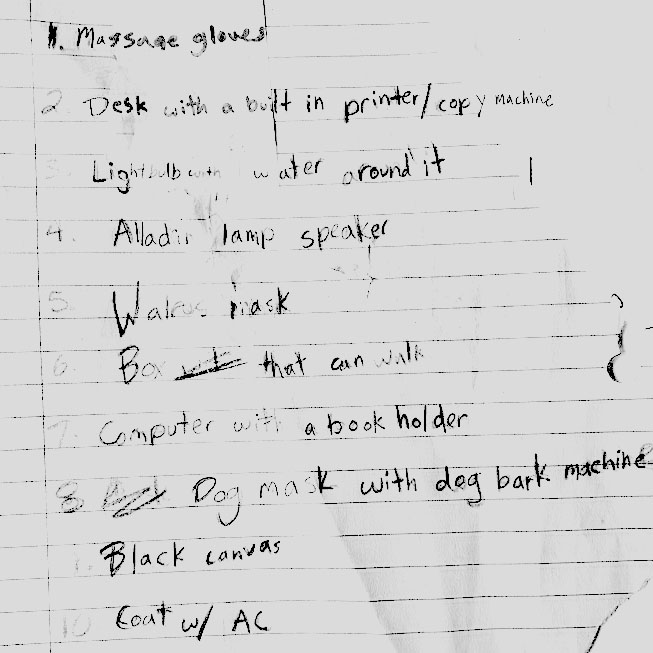 1. Massage gloves
2. Desk with a built in printer/copy machine
3. Lightbulb with water around it
4. Alladin lamp speaker
5. Walrus mask
6. Box that can walk
7. Computer with a book holder
8. Dog mask with dog bark machine
9. Black canvas
10 Coat w/ AC